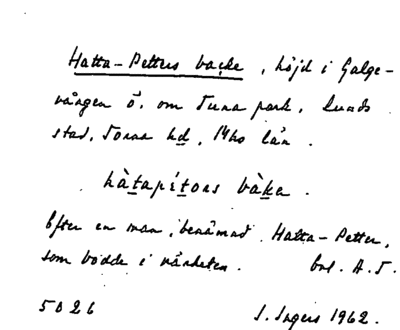 Hatta-Petters backe, höjd i Galge-
vången ö. om Tuna park, Lunds
stad, Torna hd, Mho län.
hàtapétors bàka.
Efter en man, benämnd Hatta-Petter,
som bodde i närheten. bnl. A.T.
5026 I. Ingers 1962.